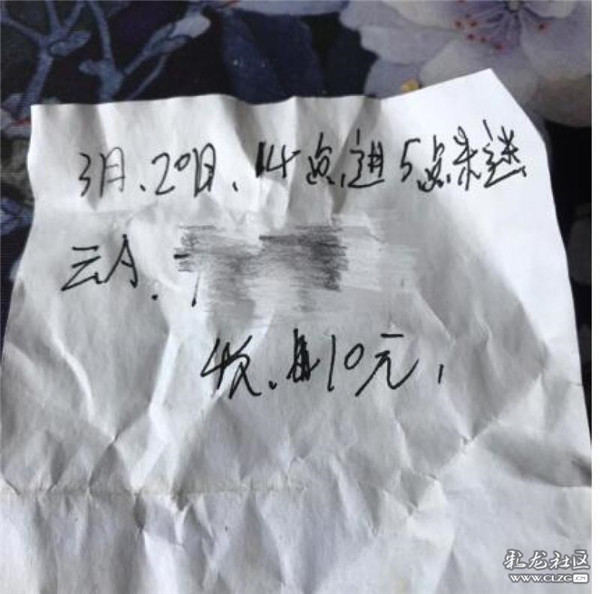 3月、20日、14点进5点未
云A、
收、10元,
彩龙社区
WWW.CLZG.CN